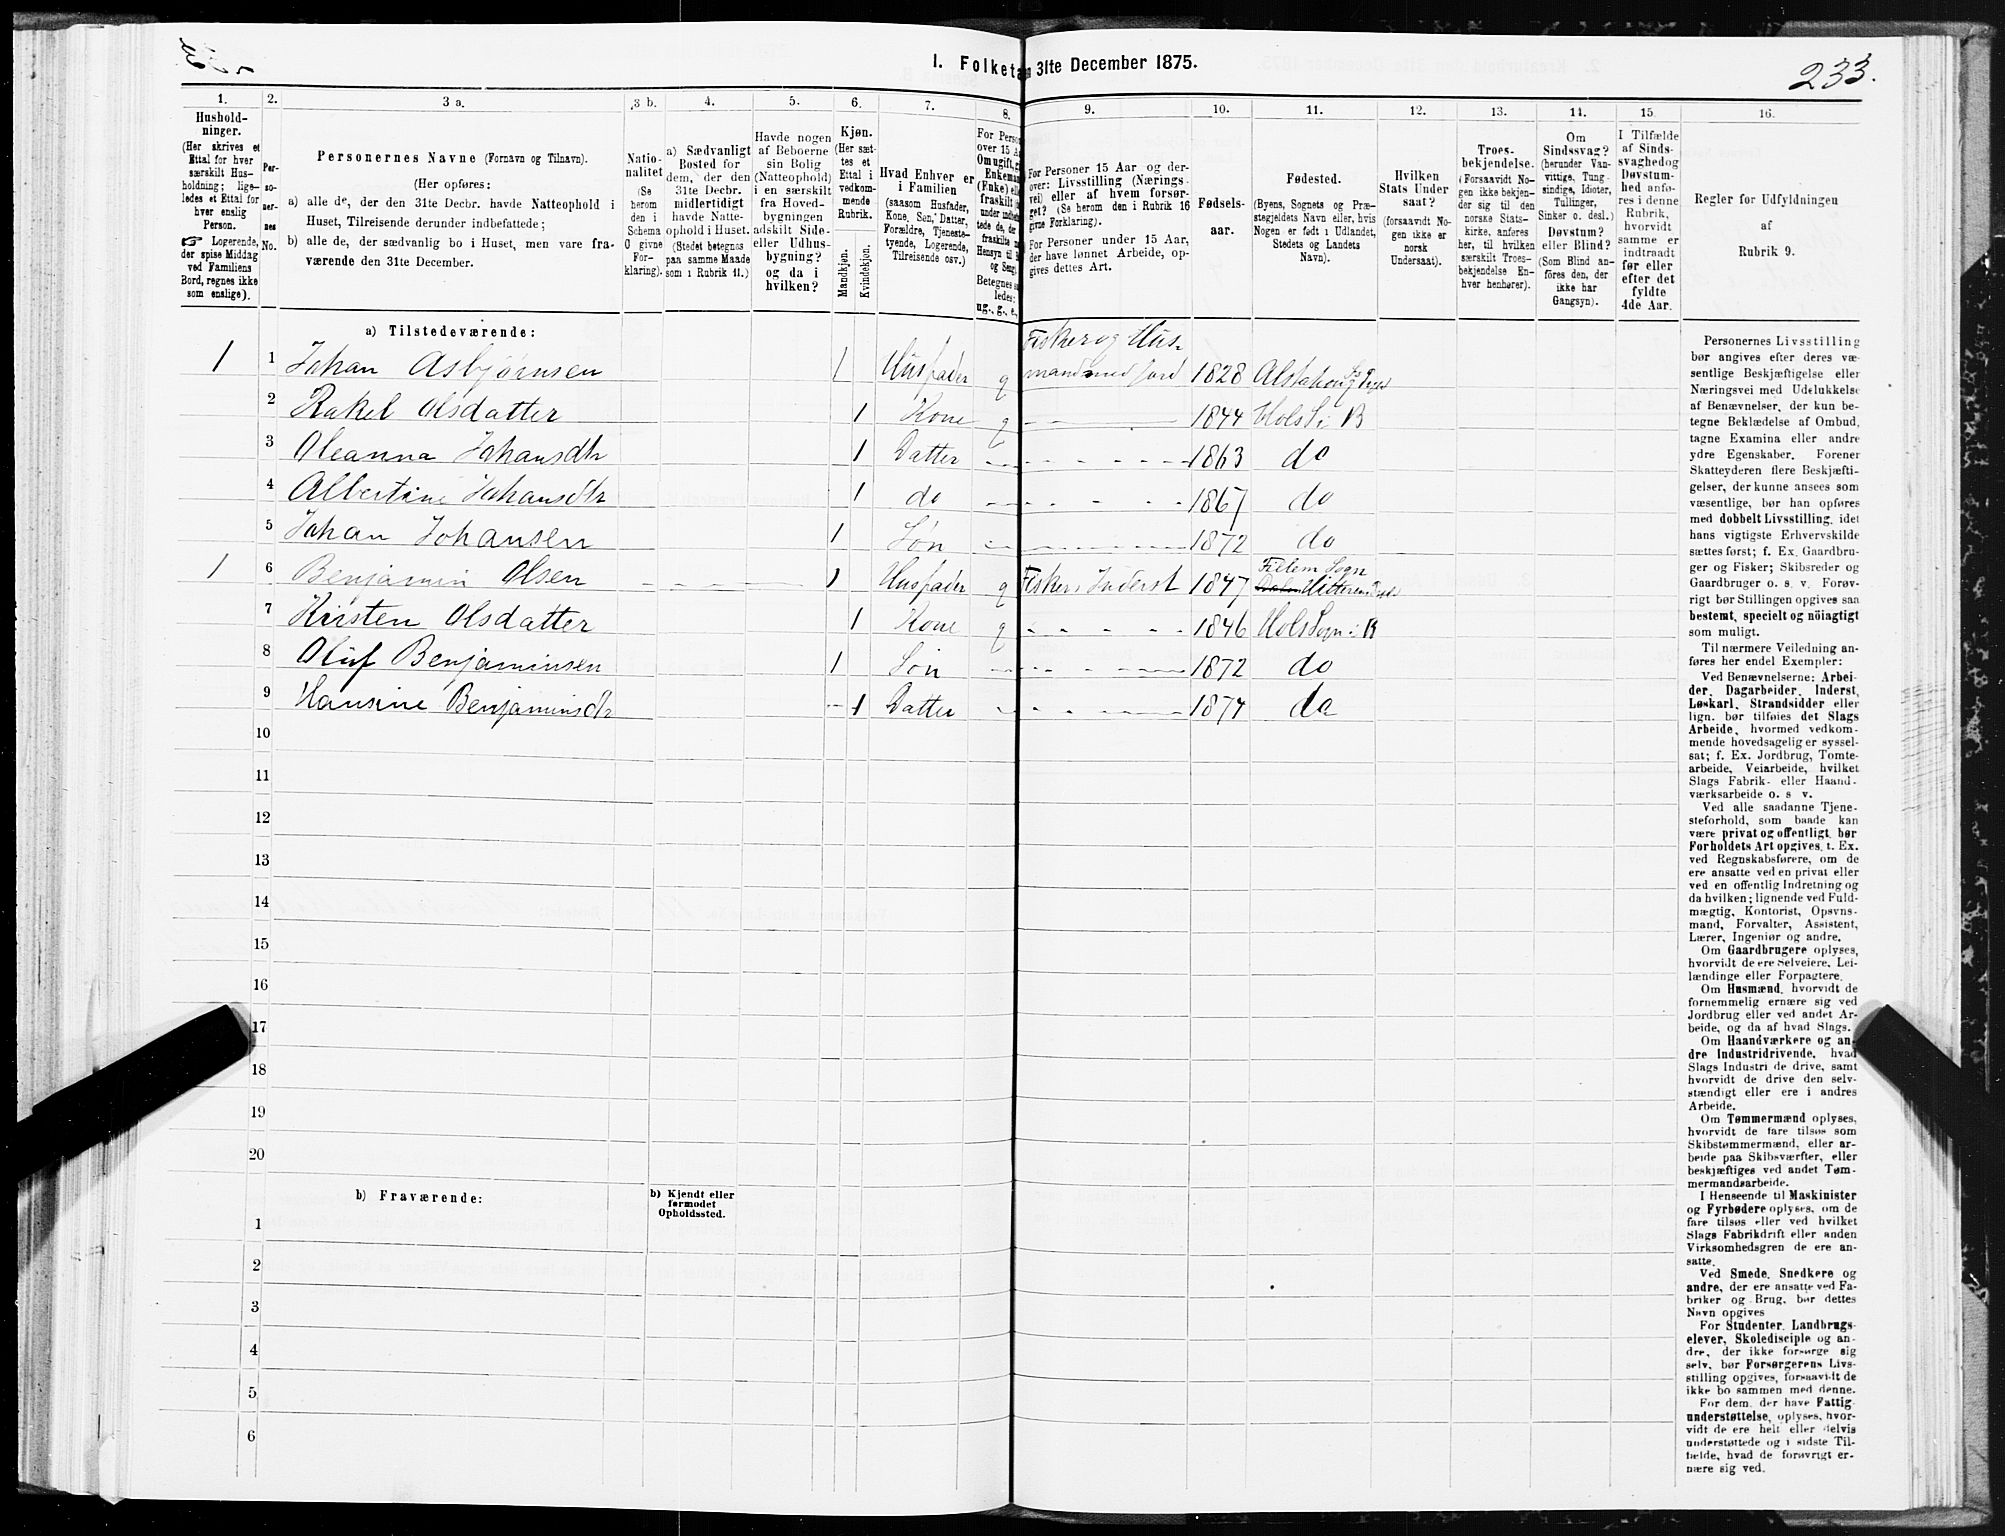 I. Folketa 31te December 1875.
233.
1. 2. 3 a. 3 b. 4. 5. 6. 7. 8. 9. 10. 11. 12. 13. 14. 15. 16.
Hushold-
ninger.
(Her skrives et
Ettal for hver
særskilt Hus-
holdning; lige-
ledes et Ettal for
hver enslig
Person.
☞ Logerende,
der spise Middag
ved Familiens
Bord, regnes ikke
som enslige).
Per-
so-
ner-
nes
No.
Personernes Navne (Fornavn og Tilnavn).
(Her opføres:
a) alle de, der den 31te Decbr. havde Natteophold i
Huset, Tilreisende derunder indbefattede;
b) alle de, der sædvanlig bo i Huset, men vare fra-
værende den 31te December.
Natio-
nalitet
(Se
herom
den i
Schema
O givne
For-
klaring).
a) Sædvanligt
Bosted for
dem, der den
31te Decbr.
midlertidigt
havde Natte-
ophold i Huset.
(Stedet betegnes
paa samme Maade
som i Rubrik 11.)
Havde nogen
af Beboerne
sin Bolig
(Natteophold)
i en særskilt
fra Hoved-
bygningen
adskilt Side-
eller Udhus-
bygning?
og da i
hvilken?
Kjøn.
(Her sæt-
tes et
Ettal i
vedkom-
mende
Rubrik.
Mandkjøn.
Kvindekjøn.
Hvad Enhver er
i Familien
(saasom Husfader,
Kone, Søn, Datter,
Forældre, Tjeneste-
tyende, Logerende,
Tilreisende osv.)
For Perso
over 15 A
Om ugift, g
Enkeman
(Enke) ell
fraskilt
og Seng.
Betegnes s
ledes:
ug., g., e.,
For Personer 15 Aar og der-
over: Livsstilling (Nærings-
vei) eller af hvem forsør-
get? (Se herom den i Rubrik 16
givne Forklaring).
For Personer under 15 Aar,
der have lønnet Arbeide, op-
gives dettes Art.
Fødsels-
aar.
Fødested.
(Byens, Sognets og Præ-
stegjeldets Navn eller, hvis
Nogen er født i Udlandet,
Stedets og Landets
Navn).
Hvilken
Stats Under
saat?
(forsaavidt No-
gen ikke er
norsk
Undersaat).
Troes-
bekjendelse.
(Forsaavidt No-
gen ikke bekjen-
der sig til den
norske Stats-
kirke, anføres
her, til hvilken
særskilt Troes-
bekjendelse En-
hver henhører).
Om
Sindssvag?
(herunder Van-
vittige, Tung-
sindige, Idioter,
Tullinger,
Sinker o. desl.)
Døvstum?
eller Blind?
(Som Blind an-
føres den, der
ikke har
Gangsyn).
I Tilfælde
af Sinds-
svaghedog
Døvstum-
hed anfø-
res i denne
Rubrik,
hvorvidt
samme er
indtraadt
før eller
efter det
fyldte
4de Aar.
Regler for Udfyldningen
af
Rubrik 9.
a) Tilstedeværende:
Fisker og Hus-
1 1 Johan Asbjørnsen 1 Husfader g mand med jord 1828 Alstahoug
2 Rakel Olsdatter 1 Kone g 1844 Hols S i B
3 Oleanna Johansdtr 1 Datter 1863 do
4 Albertine Johansdtr 1 do 1867 do
5 Johan Johansen 1 Søn 1872 do
Sogn
1 6 Benjamin Olsen 1 Husfader g Fisker Inderst 1847
7 Kirsten Olsdatter 1 Kone g 1846 Hols Sogn i B
8 Oluf Benjaminsen 1 Søn 1872 do
9 Hansine Benjaminsdtr 1 Datter 1874 do
10
11
12
13
14
15
16
17
18
19
20
b) Fraværende:
b) Kjendt eller
formodet
Opholdssted.
1
2
3
4
5
6
Personernes Livsstilling
bør angives efter deres væ-
sentlige Beskjæftigelse eller
Næringsvei med Udelukkelse
af Benævnelser, der kun be-
tegne Beklædelse af Ombud,
tagne Examina eller andre
ydre Egenskaber. Forener
Skatteyderen flere Beskjæfti-
gelser, der kunne ansees som
væsentlige, bør han opføres
med dobbelt Livsstilling, idet
hans vigtigste Erhvervskilde
sættes først; f. Ex. Gaardbru-
ger og Fisker; Skibsreder og
Gaardbruger o. s. v. Forøv-
rigt bør Stillingen opgives saa
bestemt, specielt og nöiagtigt
som muligt.
Til nærmere Veiledning an-
føres her endel Exempler:
Ved Benævnelserne: Arbei-
der, Dagarbeider, Inderst,
Løskarl, Strandsidder eller
lign. bør tilføies det Slags
Arbeide, hvormed vedkom-
mende hovedsagelig er syssel-
sat; f. Ex. Jordbrug, Tomte-
arbeide, Veiarbeide, hvilket
Slags Fabrik- eller Haand-
værksarbeide o. s v.
Ved alle saadanne Tjene-
steforhold, som baade kan
være privat og offentligt, bør
Forholdets Art opgives, t. Ex.
ved Regnskabsførere, om de
ere ansatte ved en privat eller
ved en offentlig Indretning og
da hvilken; lignende ved Fuld-
mægtig, Kontorist, Opsyns-
mand, Forvalter, Assistent,
Lærer, Ingeniør og andre.
Om Gaardbrugere oplyses,
hvorvidt de ere Selveiere, Lei-
lændinge eller Forpagtere.
Om Husmænd, hvorvidt de
fornemmelig ernære sig ved
Jordbrug eller ved andet Ar-
beide, og da af hvad Slags.
Om Haandværkere og an-
dre Industridrivende, hvad
Slags Industri de drive, samt
hvorvidt de drive den selv-
stændigt eller ere i andres
Arbeide.
Om Tømmermænd oplyses,
hvorvidt de fare tilsøs som
Skibstømmermænd, eller ar-
beide paa Skibsværfter, eller
beskjæftiges ved andet Tøm-
mermandsarbeide.
I Henseende til Maskinister
og Fyrbødere oplyses, om de
fare tilsøs eller ved hvilket
Slags Fabrikdrift eller anden
Virksomhedsgren de ere an-
satte.
Ved Smede, Snedkere og
andre, der ere ansatte ved Fa-
briker og Brug, bør dettes
Navn opgives
For Studenter, Landbrugs-
elever, Skoledisciple og an-
dre, der ikke forsørge sig
selv, bør Forsørgerens Livs-
stilling opgives, forsaavidt de
ikke bo sammen med denne.
For dem, der have Fattig-
understøttelse, oplyses, hvor-
vidt de ere helt eller delvis
understøttede og i sidste Til-
fælde, hvad de forøvrigt er-
nære sig ved.